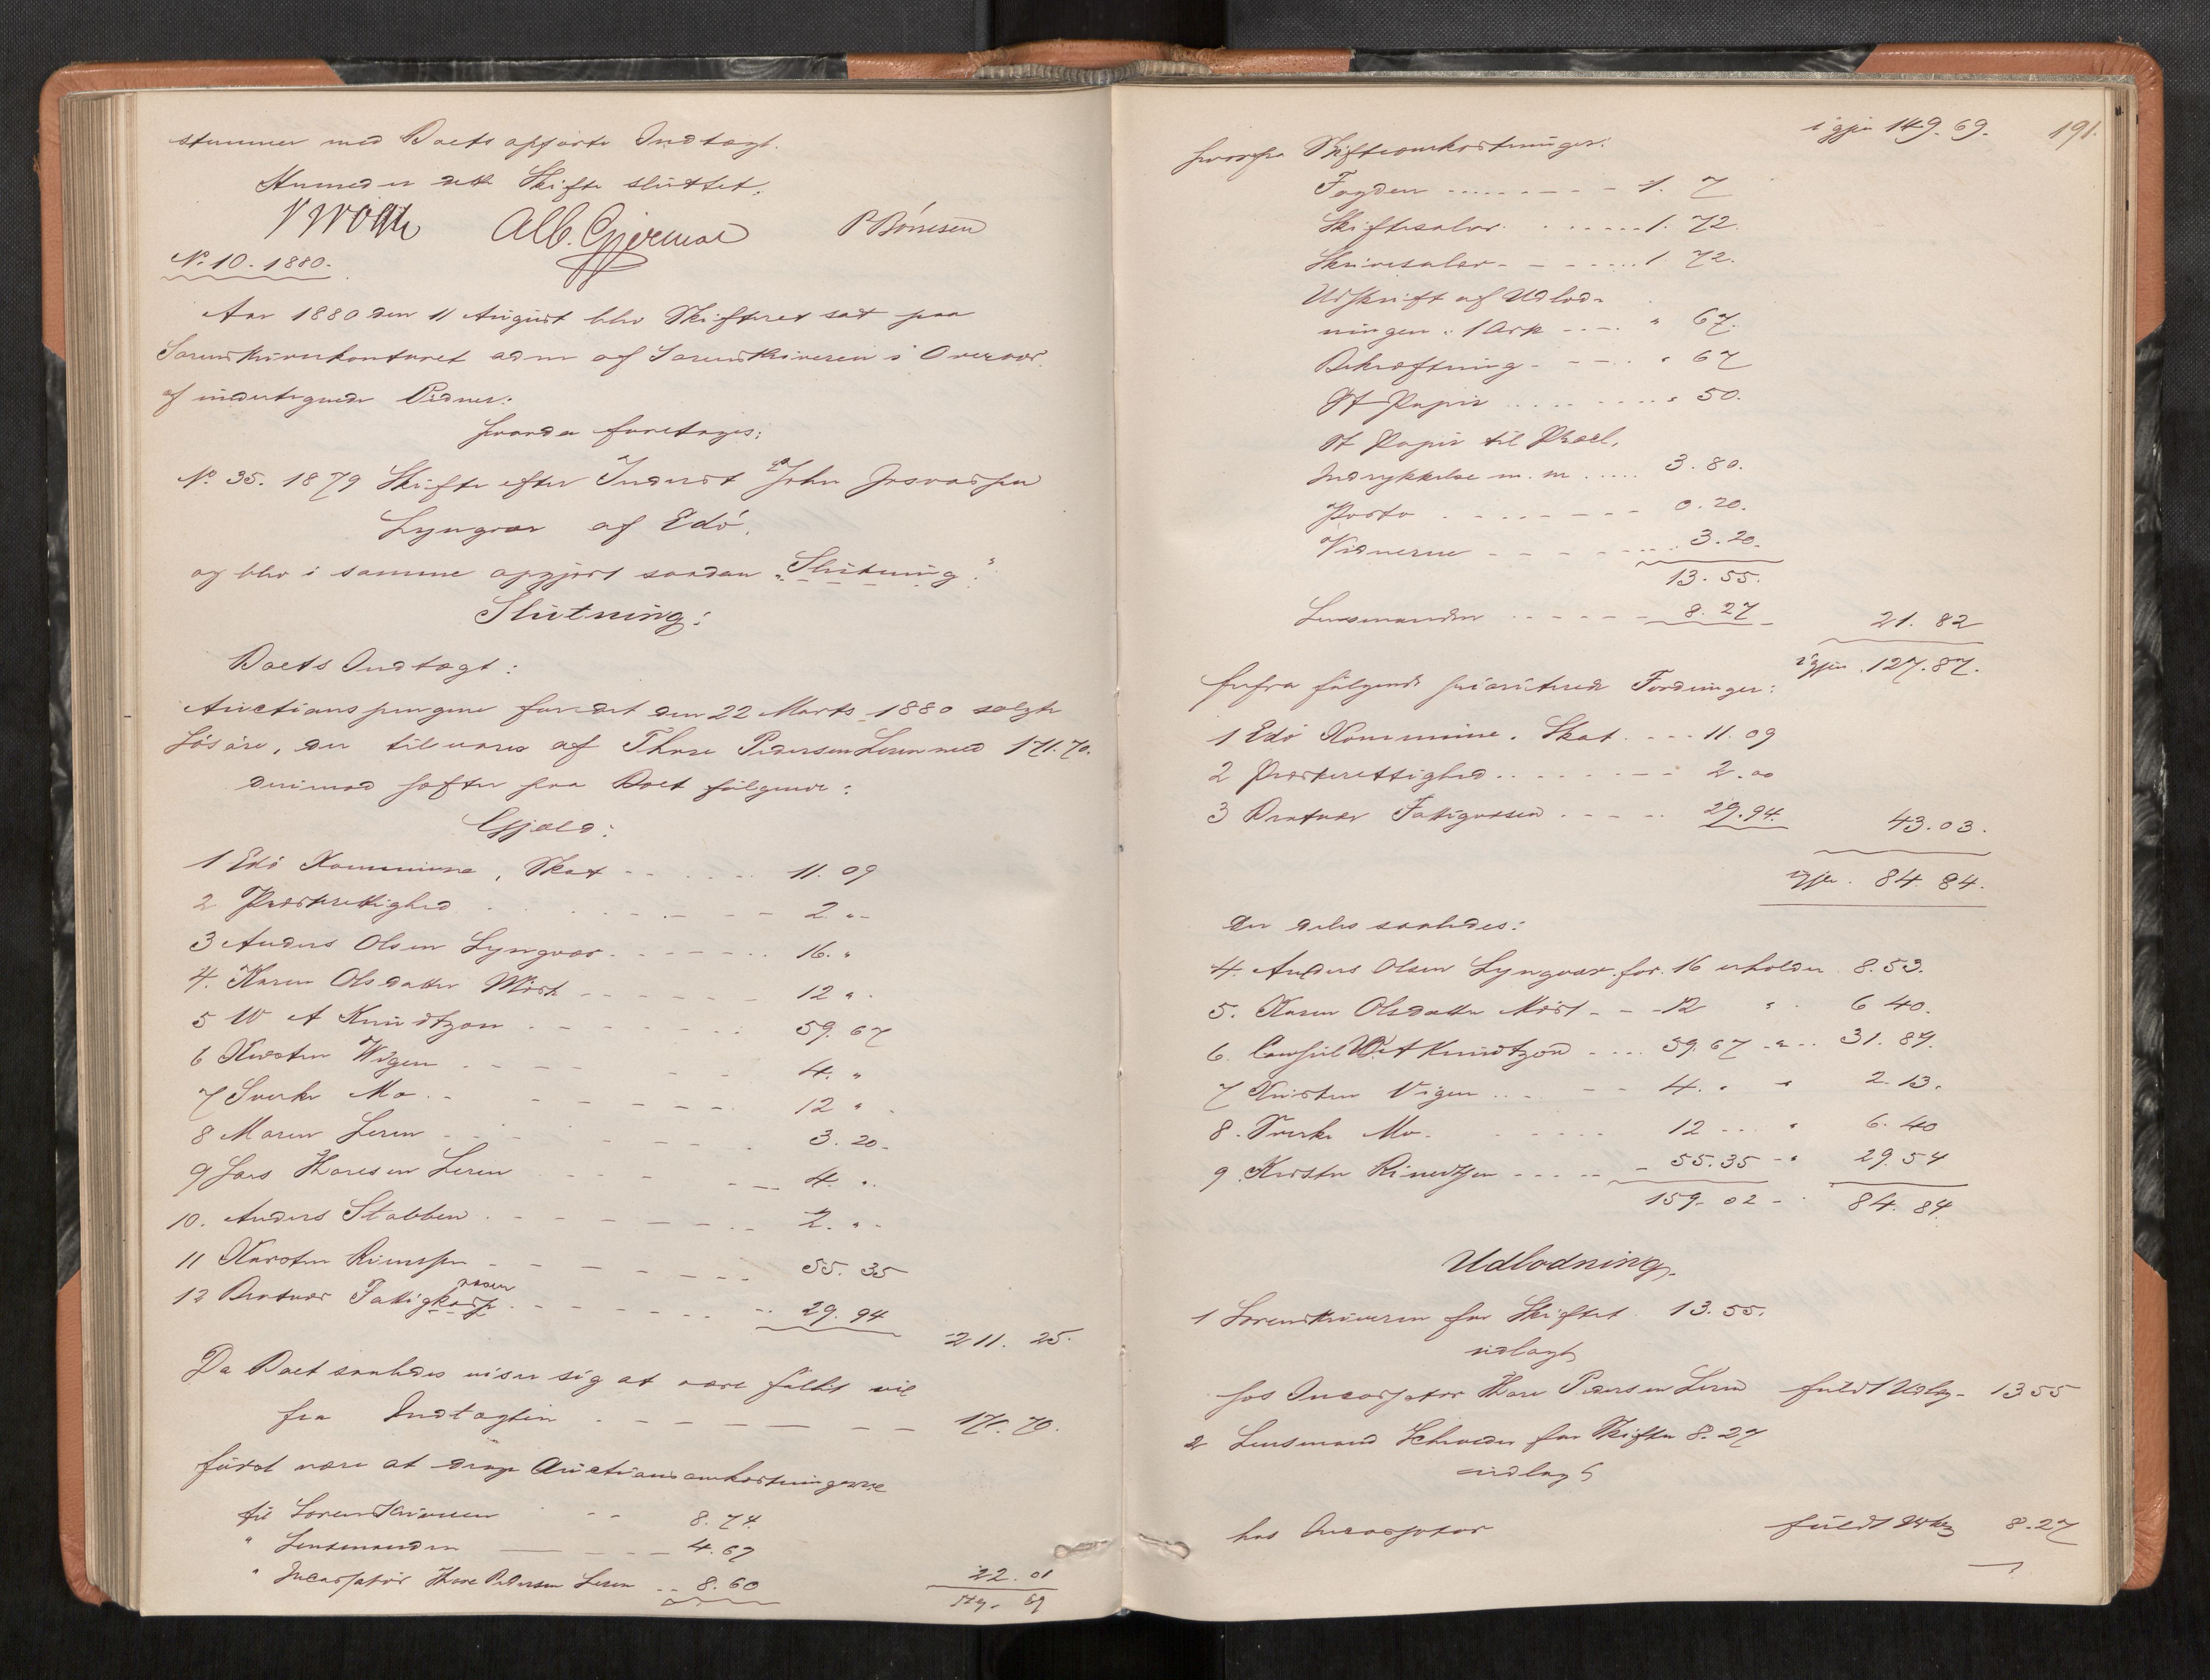 stemmer med Boets opførte Indtægt.
Hermed er dette Skifte sluttet.
Alb. Gjermoe P Børresen
No 10. 1880.
Aar 1880 den 11 August blev Skifteret sat paa
Sorenskriverkontoret adm af Sorenskriveren i Overvær
af undertegnede Vidner:
hvorda foretoges:
No 35. 1879 Skifte efter Inderst John Josvasen
Lyngvær af Edø.
og blev i samme opgjort saadan "Slutning:"
Slutning:
Boets Indtægt:
Auctionspengene for det den 22 Marts 1880 solgte
Løsøre, der tilsvares af Thore Pedersen Leren med 171.70.
derimod hefter paa Boet følgende:
Gjæld:
1 Edø Kommune, Skat - - - 11. 09
2 Præsterettighed - - - 2 "
3 Anders Olsen Lyngvær - - - 16. "
4. Karen Olsdatter Mørk - - - 12 "
5 W A Knudtzon - - - 59. 67
6 Kirsten Wigen - - - 4. "
7 Sverke Mo - - - 12 "
8 Maren Leren - - - 3. 20
9 Lars Thoresen Leren - - - 4. "
10. Anders Stabben - - - 2. "
11 Karsten Riversen - - - 55. 35
12 Bratvær Fattigkasse - - - 29. 94
211. 25.
Da Boet saaledes viser sig at være fallit vil
fra Indtægten - - - 171. 70.
først være at drage Auctionsomkostningerne
til Sorenskriveren - - 8. 74
" Lensmanden - - - 4. 67
" Incassator Thore Pedersen Leren - - 8. 60
22. 01
149. 69
191.
igjen 149. 69.
hvorfra Skifteomkostninger:
Fogden - - - 1. 7
Skiftesalær - - - 1. 72.
Skriversalær - - - 1. 72.
Udskrift af Udlod-
ningen: 1 Ark - - - " 67.
Bekræftning - - - " 67
St Papir - - - " 50.
St Papir til Procl.
Indrykkelse m. m - - - 3. 80.
Porto - - - 0. 20.
Vidnerne - - - 3. 20.
13. 55.
Lensmanden - - - 8. 27
21. 82
igjen 127. 87.
herfra følgende prioriterede Fordringer:
1 Edø Kommune. Skat - - - 11. 09
2 Præsterettighed - - - 2. 00
3 Bratvær Fattigvæsen - - - 29. 94.
43. 03.
igjen. 84 84.
der deles saaledes:
4. Anders Olsen Lyngvær for 16 erholder 8. 53.
5. Karen Olsdatter Mørk - - - 12 " 6 40.
6. Consul W. A Knudtzon - - - 59. 67 " 31. 84.
7 Kirsten Vigen - - - 4. " " 2. 13.
8. Sverke Mo - - - 12 " 6. 40
9. Kirsten - - - 55. 35 " 29. 54
159. 02 84. 84.
Udlodning.
1 Sorenskriveren for Skiftet 13. 55.
udlagt
hos Incassator Thore Pedersen Leren fuldt Udlæg 13 55
2 Lensmand Schrøder for Skifte 8. 27
udlagt
hos Incassator fuldt Udlæg 8. 27